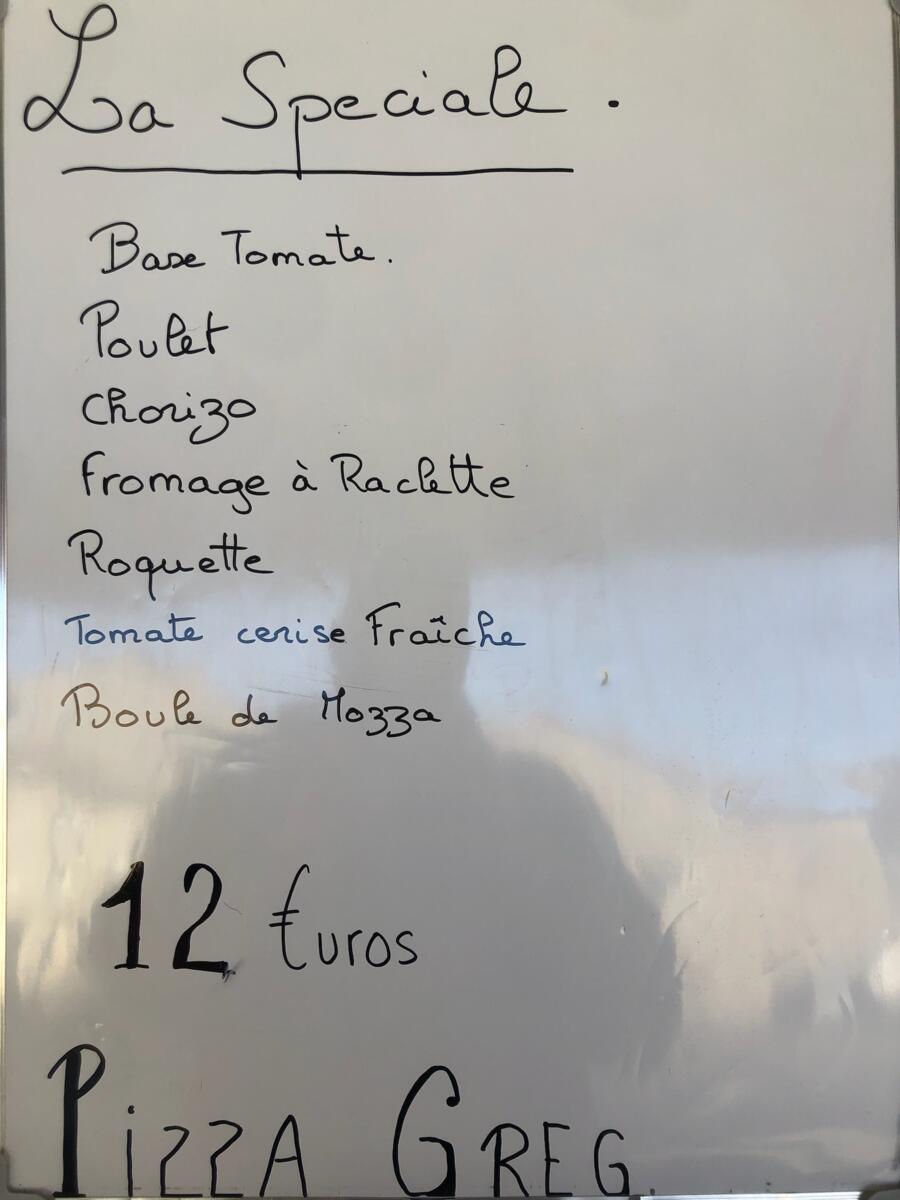 La Speciale.
Base Tomate.
Poulet
Chorizo
fromage à Raclette
Roquette
Tomate cerise Fraîche
Boule de Mozza
12 €uros
PIZZA GREG